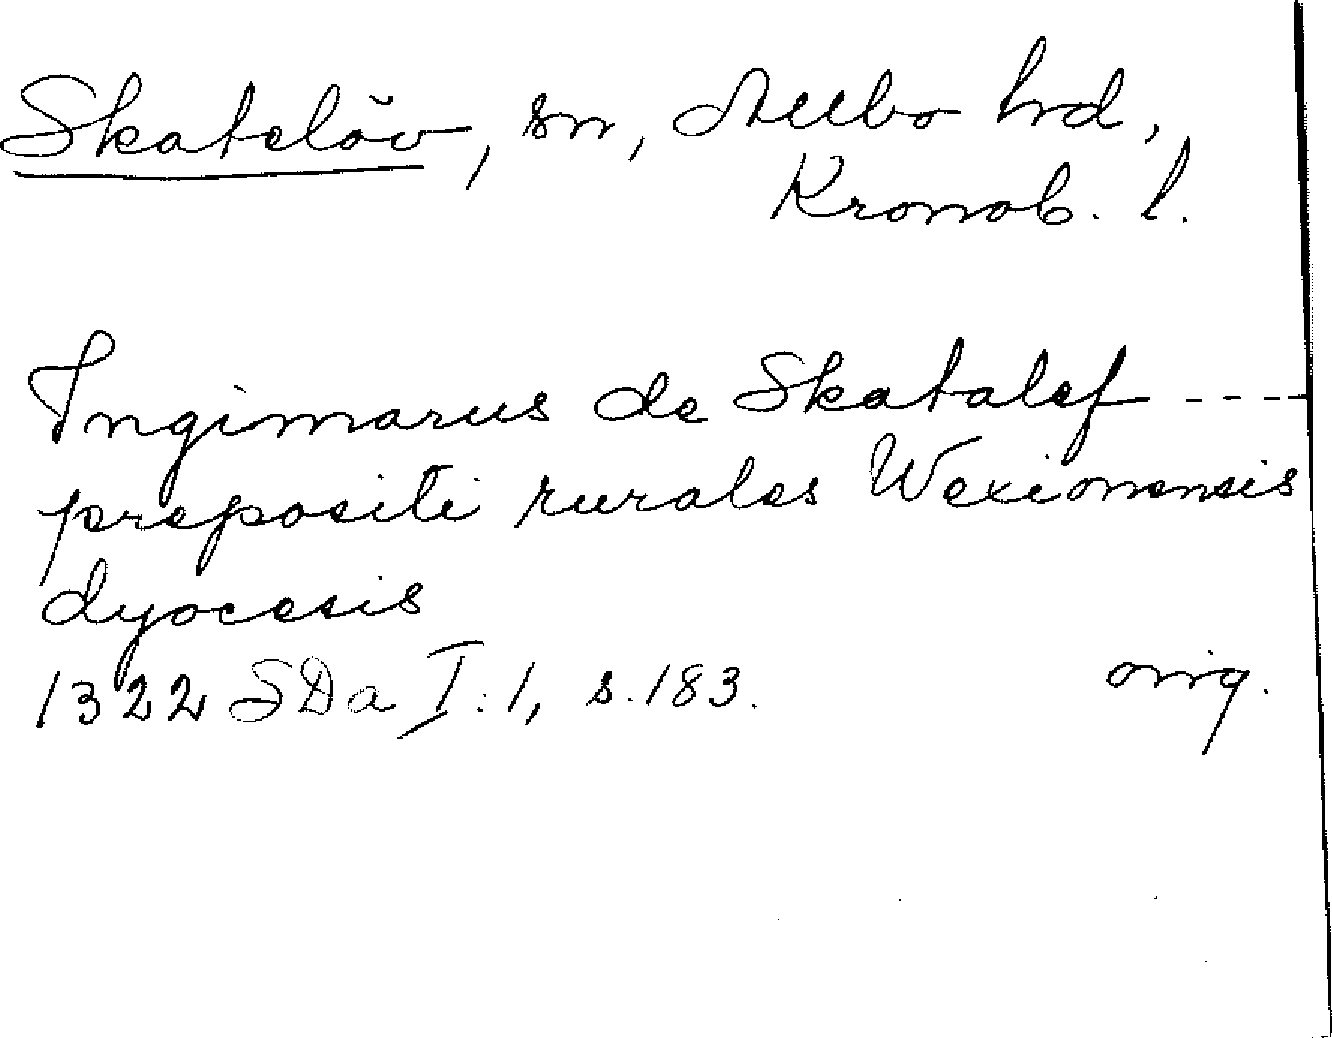 Skatelöv, sn, Allbo hd,
Kronob. l.
Ingimarus de Skatalef ----
prepositi rurales Wexionensis
dyocesis
1322 SDa I:1, s. 183. orig.